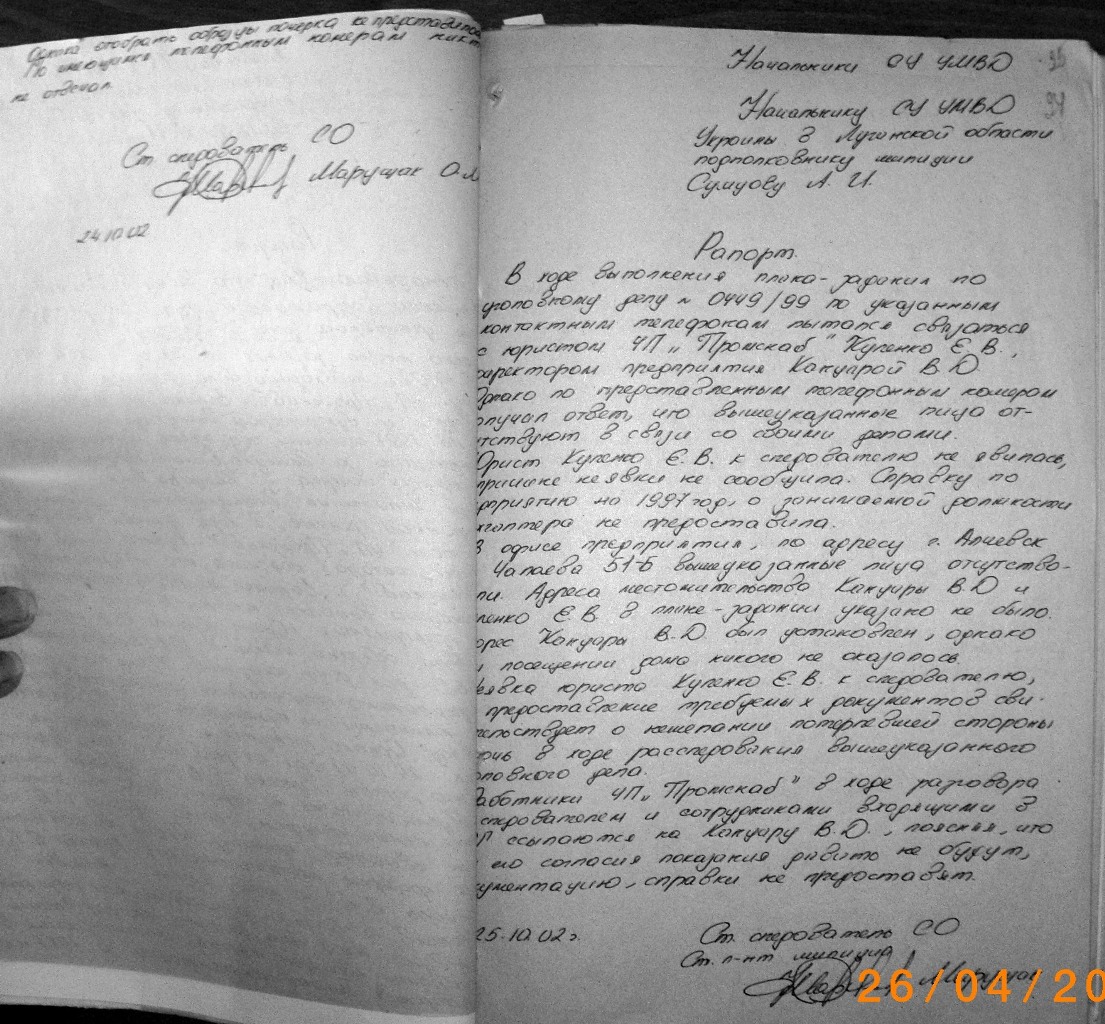 отобрать образцы почерка не представилось
По имеющимся телефонным номерам никт
не отвечал.
Ст. следователь СО
Марущак О.М
24.10.02
Начальники СУ УМВД
95
Начальнику СУ УМВД
94
Украины в Луганской области
подполковнику милиции
А. И.
Рапорт.
В ходе выполнения плана-задания по
уголовному делу № 0449/99 по указанным
контактным телефонам пытался связаться
с юристом ЧП „Промснаб" Куленко Е. В.,
директором предприятия Канцарой В. Д.
Однако по представленным телефонным номером
олучал ответ, что вышеуказанные лица от-
тствуют в связи со своими делами.
Юрист Куленко Е. В. к следователю не явилась,
причине неявки не сообщила. Справку по
дприятию на 1997 год, о занимаемой должности
хгалтера не предоставила.
В офисе предприятия, по адресу г. Алчевск
Чапаева 51-Б вышеуказанные лица отсутство-
ли. Адреса местожительства Канцары В. Д и
ленко Е. В. в плане-задании указано не было.
дрес Канцары В. Д. был установлен, однако
и посещении дома никого не оказалось.
еявка юриста Куленко Е. В. к следователю,
предоставление требуемых документов сви-
тельствует о нежелании потерпевшей стороны
мочь в ходе расследования вышеуказанного
оловного дела.
Работники ЧП „Промснаб" в ходе разговора
следователем и сотрудниками входящими в
ссылаются на Канцару В. Д., поясняя, что
его согласия показания давать не будут,
кументацию, справки не предоставят.
25.10.02 г.
Ст. следователь СО
Ст. л-нт милиции
Марущак
26/04/20